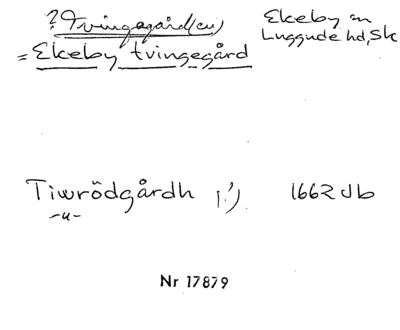 ?Tvingegård(en)
Ekeby sn
Luggude hd, Sk
= Ekeby tvingegård
Tiwrödgårdh (!) 1662 Jb
-u-
Nr 17879